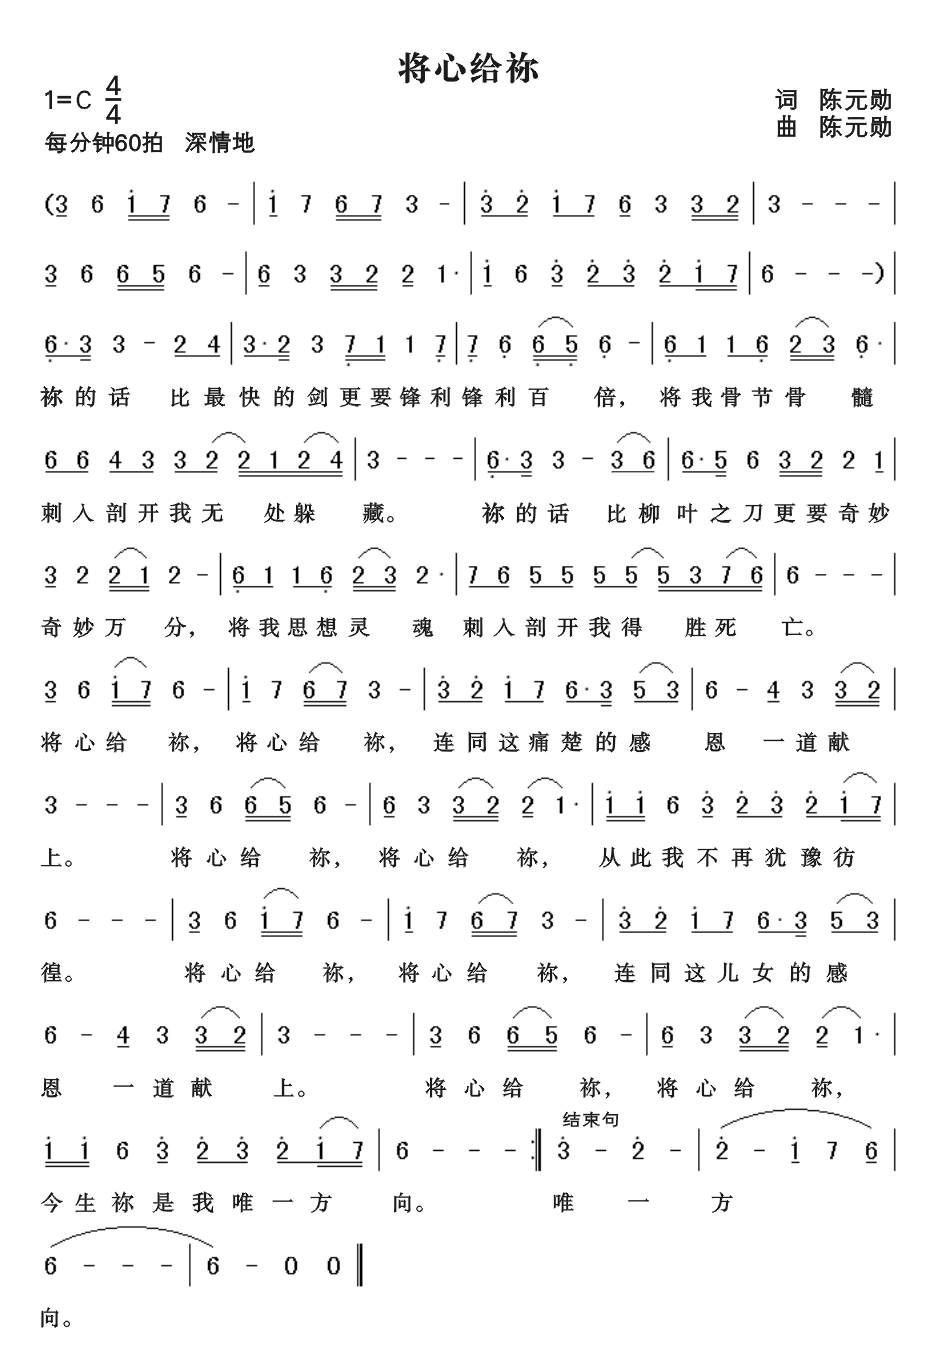 将心给祢
1=C 4/4
词 陈元勋
曲 陈元勋
每分钟60拍 深情地
(3 6 i 7 6 - | i 7 6 7 3 - | 3 2 i 7 6 3 3 2 | 3 - - - |
3 6 6 5 6 - | 6 3 3 2 2 1· | i 6 3 2 3 2 i 7 | 6 - - -) |
6·3 3 - 2 4 | 3·2 3 7 1 1 7 | 7 6 6 5 6 - | 6 1 1 6 2 3 6· |
祢的话 比最快的剑更要锋利锋利百 倍, 将我骨节骨 髓
6 6 4 3 3 2 2 1 2 4 | 3 - - - | 6·3 3 - 3 6 | 6·5 6 3 2 2 1 |
刺入剖开我无 处躲 藏。 祢的话 比柳叶之刀更要奇妙
3 2 2 1 2 - | 6 1 1 6 2 3 2· | 7 6 5 5 5 5 5 3 7 6 | 6 - - - |
奇妙万 分, 将我思想灵 魂 刺入剖开我得 胜死 亡。
3 6 i 7 6 - | i 7 6 7 3 - | 3 2 i 7 6·3 5 3 | 6 - 4 3 3 2 |
将心给 祢, 将心给 祢, 连同这痛楚的感 恩 一道献
3 - - - | 3 6 6 5 6 - | 6 3 3 2 2 1· | i i 6 3 2 3 2 i 7 |
上。 将心给 祢, 将心给 祢, 从此我不再犹豫彷
6 - - - | 3 6 i 7 6 - | i 7 6 7 3 - | 3 2 i 7 6·3 5 3 |
徨。 将心给 祢, 将心给 祢, 连同这儿女的感
6 - 4 3 3 2 | 3 - - - | 3 6 6 5 6 - | 6 3 3 2 2 1· |
恩 一道献 上。 将心给 祢, 将心给 祢,
结束句
i i 6 3 2 3 2 i 7 | 6 - - - :‖ 3 - 2 - | 2 - i 7 6 |
今生祢是我唯一方 向。 唯 一 方
6 - - - | 6 - 0 0 ‖
向。